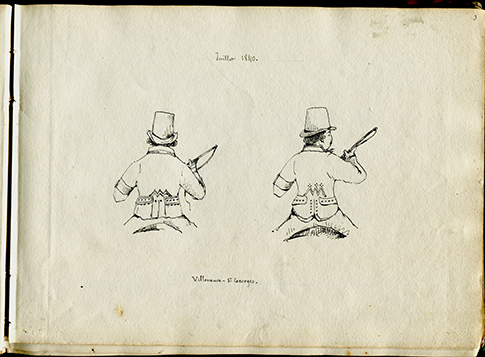 Juillet 1840.
Villeneuve-St Georges.